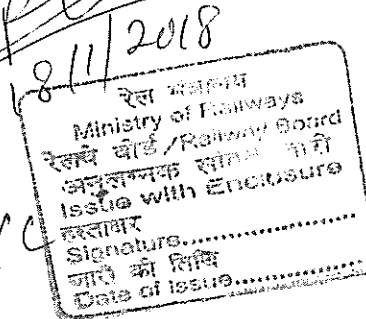 18/1/2018
रेल मंत्रालय
Ministry of Railways
रेलवे बोर्ड/Railway Board
अनुलग्नक सहित जारी
Issue with Enclosure
हस्ताक्षर
Signature..................
जारी की तिथि
Date of Issue..................